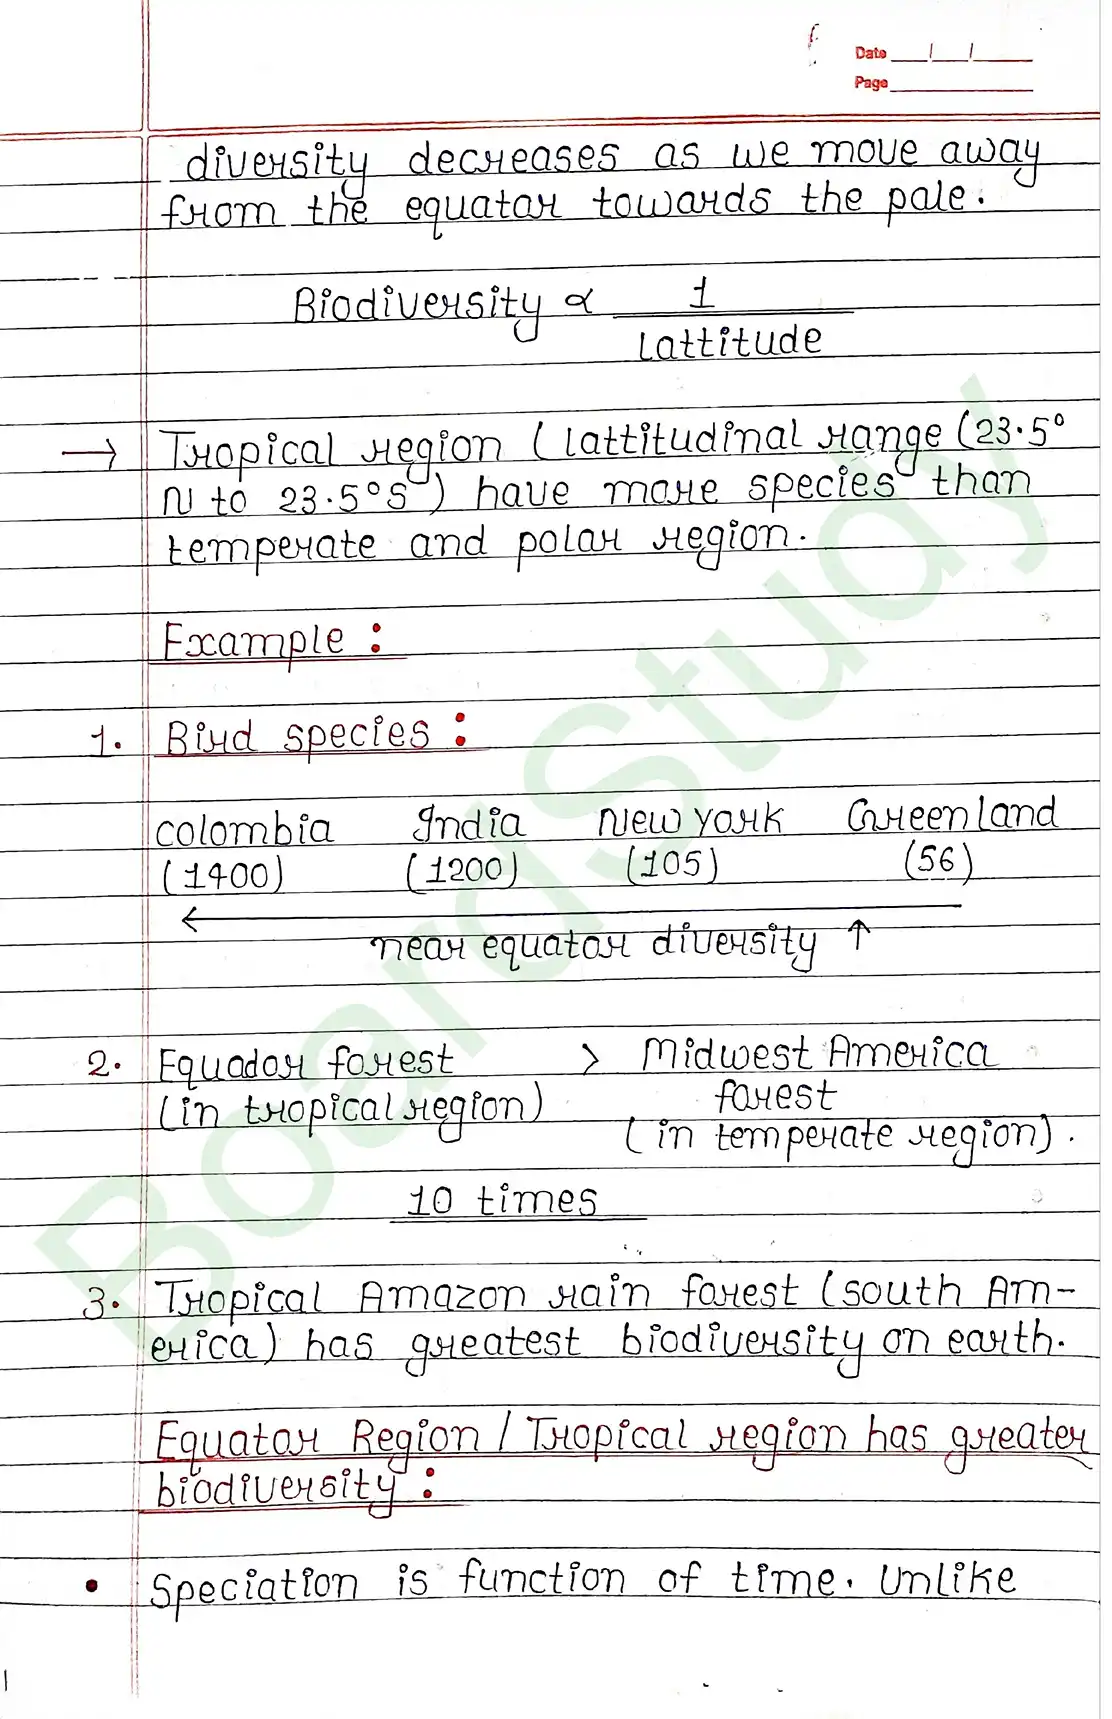 Date __/__/____
Page ________
diversity decreases as we move away
from the equator towards the pole.
Biodiversity ∝ 1
Lattitude
→ Tropical region (lattitudinal range (23.5°
N to 23.5°S) have more species than
temperate and polar region.
Example :
1. Bird species :
colombia India New York Greenland
(1400) (1200) (105) (56)
←
near equator diversity ↑
2. Equador forest > Midwest America
(in tropical region) forest
(in temperate region).
10 times
3. Tropical Amazon rain forest (south Am-
erica) has greatest biodiversity on earth.
Equator Region / Tropical region has greater
biodiversity :
• Speciation is function of time. Unlike
BoardStudy